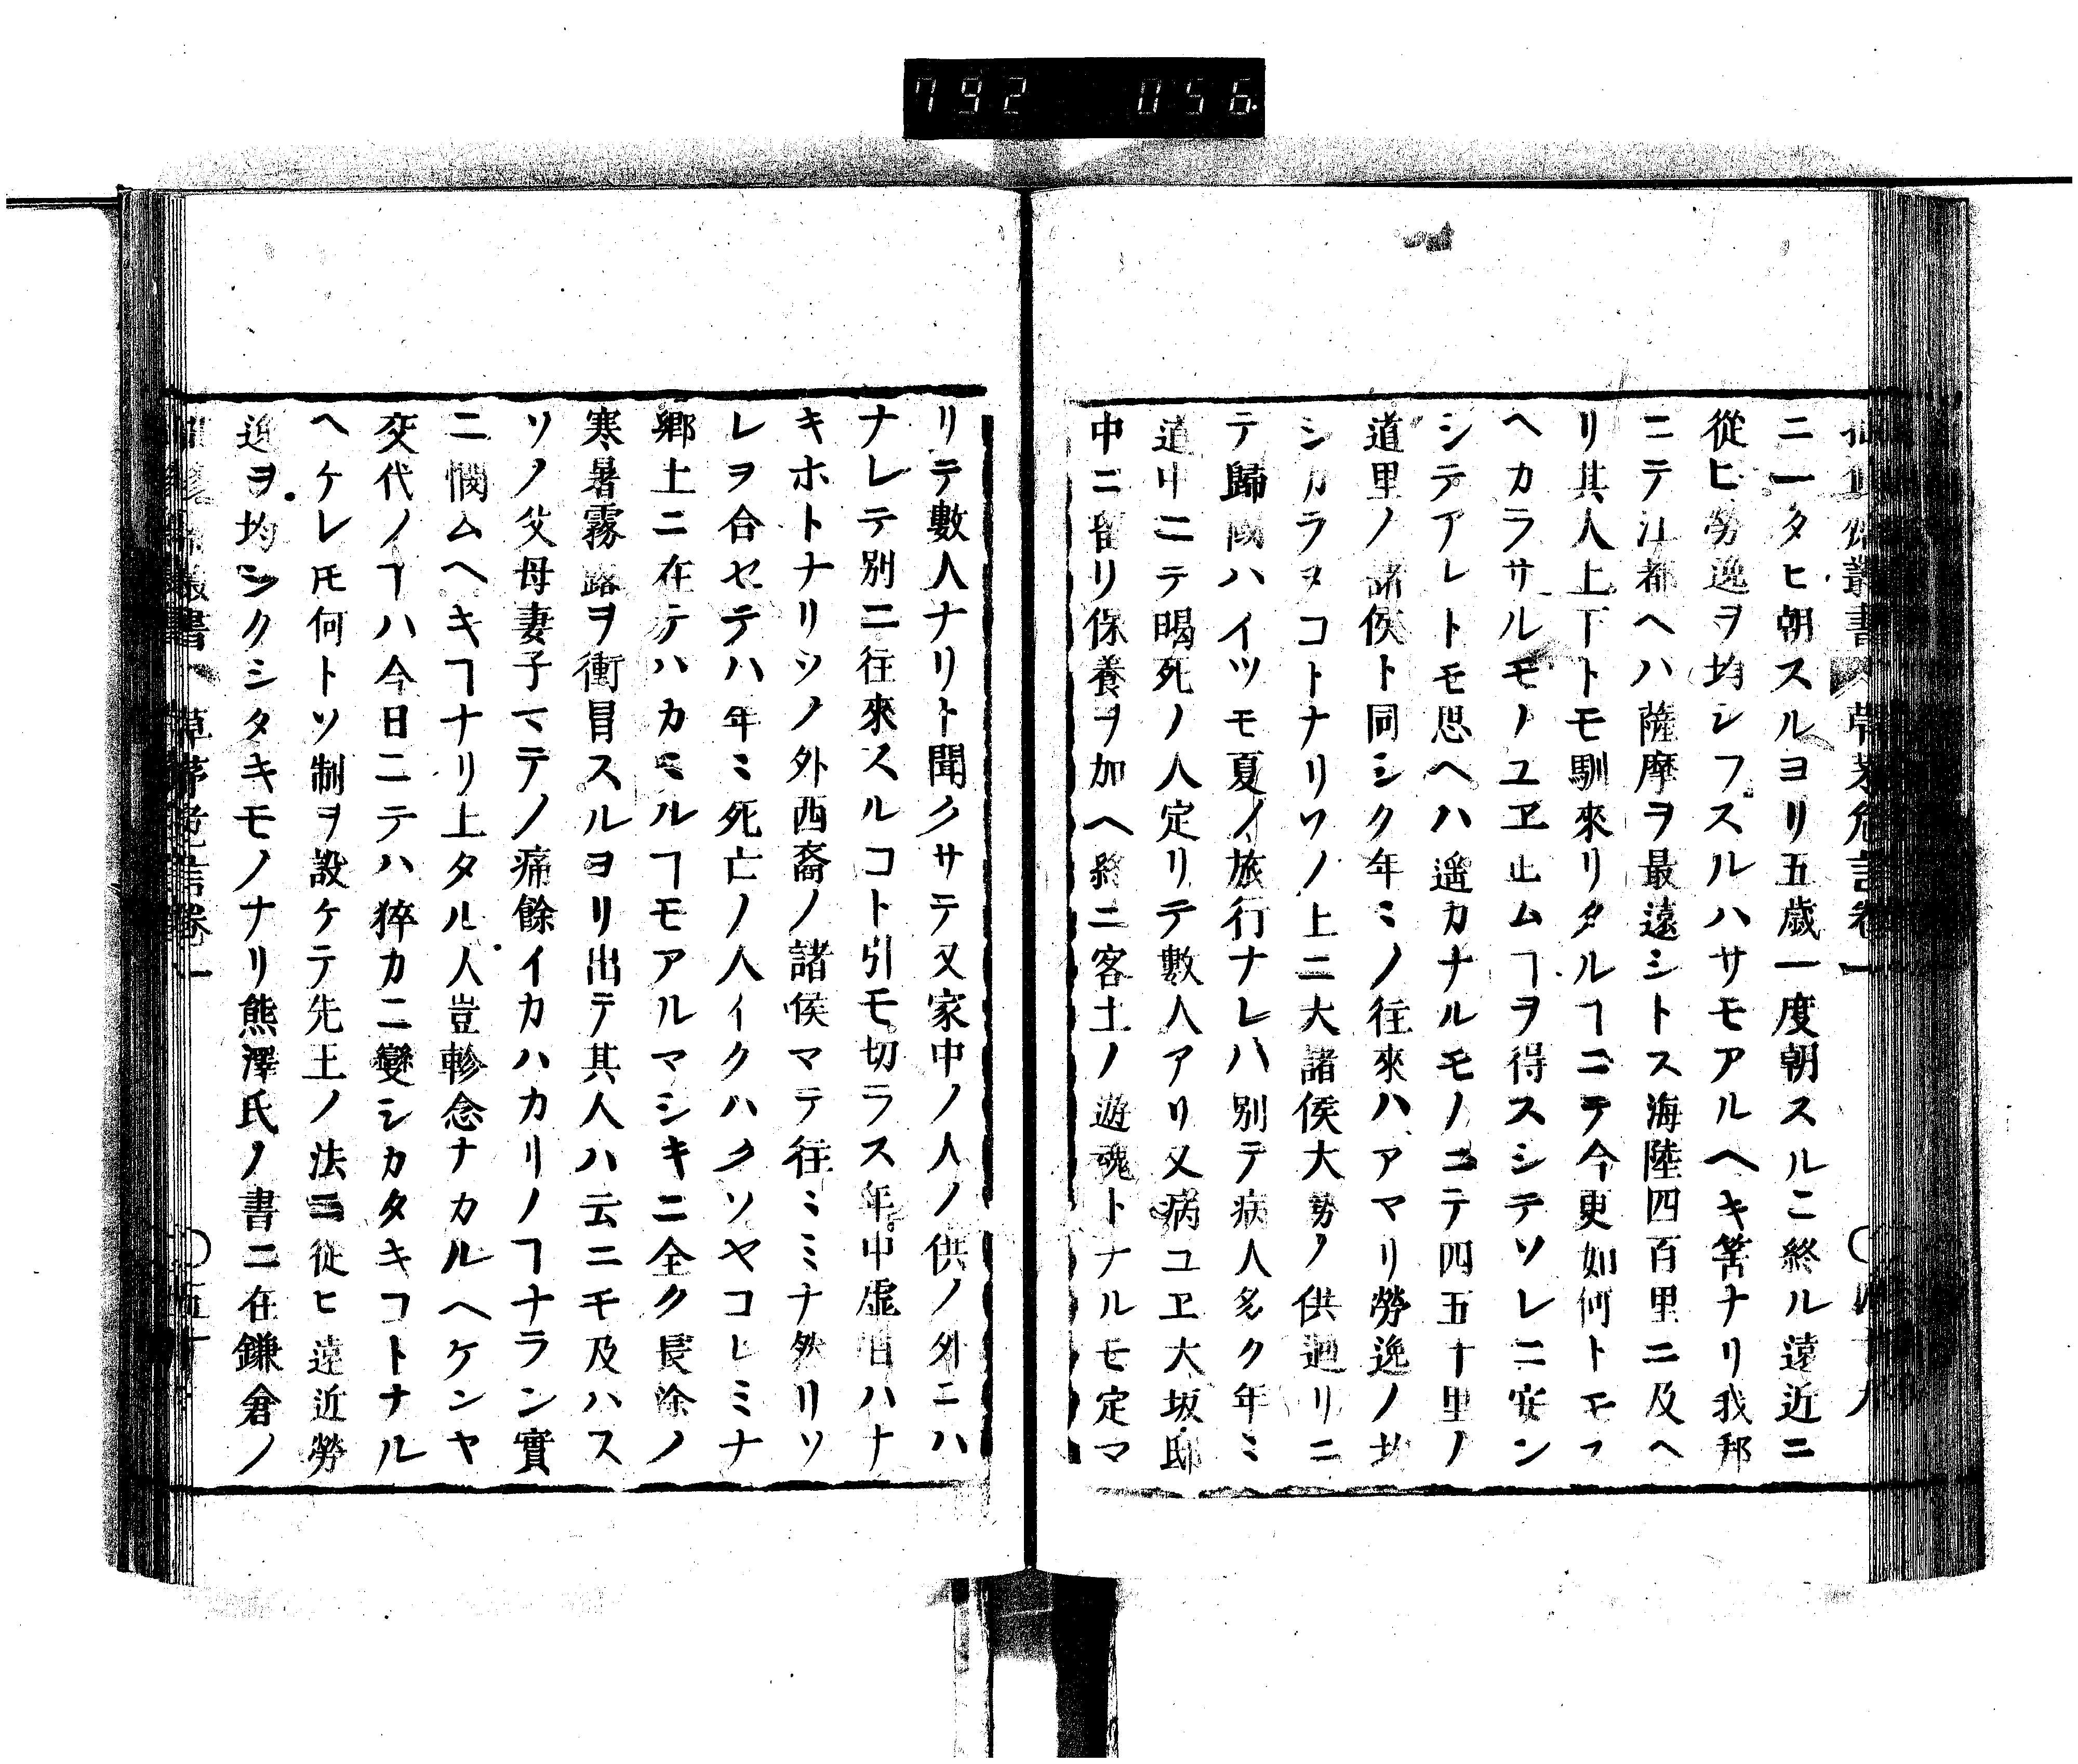 792 056
ニ一タヒ朝スルヨリ五歲一度朝スルニ終ル遠近ニ
從ヒ勞逸ヲ均シフスルハサモアルヘキ筈ナリ我邦
ニテ江都ヘハ薩摩ヲ最遠シトス海陸四百里ニ及ヘ
リ其人上下トモ馴來リタルヿニテ今更如何トモス
ヘカラサルモノユヱ止ムヿヲ得スシテソレニ安ン
シテアレトモ思ヘハ遥カナルモノニテ四五十里ノ
道里ノ諸侯ト同シク年ミノ往來ハアマリ勞逸ノ均
シカラヌコトナリソノ上ニ大諸侯大勢ノ供廻リニ
テ歸國ハイツモ夏ノ旅行ナレハ別テ病人多ク年ミ
道中ニテ暍死ノ人定リテ數人アリ又病ユヱ大坂邸
中ニ留リ保養ヲ加ヘ終ニ客土ノ遊魂トナルモ定マ
リテ數人ナリト聞クサテ又家中ノ人ノ供ノ外ニハ
ナレテ別ニ往來スルコト引モ切ラス年中虛日ハナ
キホトナリソノ外西裔ノ諸侯マテ往ミミナ然リソ
レヲ合セテハ年ミ死亡ノ人イクハクソヤコレミナ
鄕土ニ在テハカミルヿモアルマシキニ全ク長途ノ
寒暑霧露ヲ衝冒スルヨリ出テ其人ハ云ニモ及ハス
ソノ父母妻子マテノ痛餘イカハカリノヿナラン實
ニ憫ムヘキヿナリ上タル人豈軫念ナカルヘケンヤ
交代ノヿハ今日ニテハ猝カニ變シカタキコトナル
ヘケレ𪜈何トソ制ヲ設ケテ先王ノ法ニ從ヒ遠近勞
逸ヲ均シクシタキモノナリ熊澤氏ノ書ニ在鎌倉ノ
叢書 草茅危言卷一